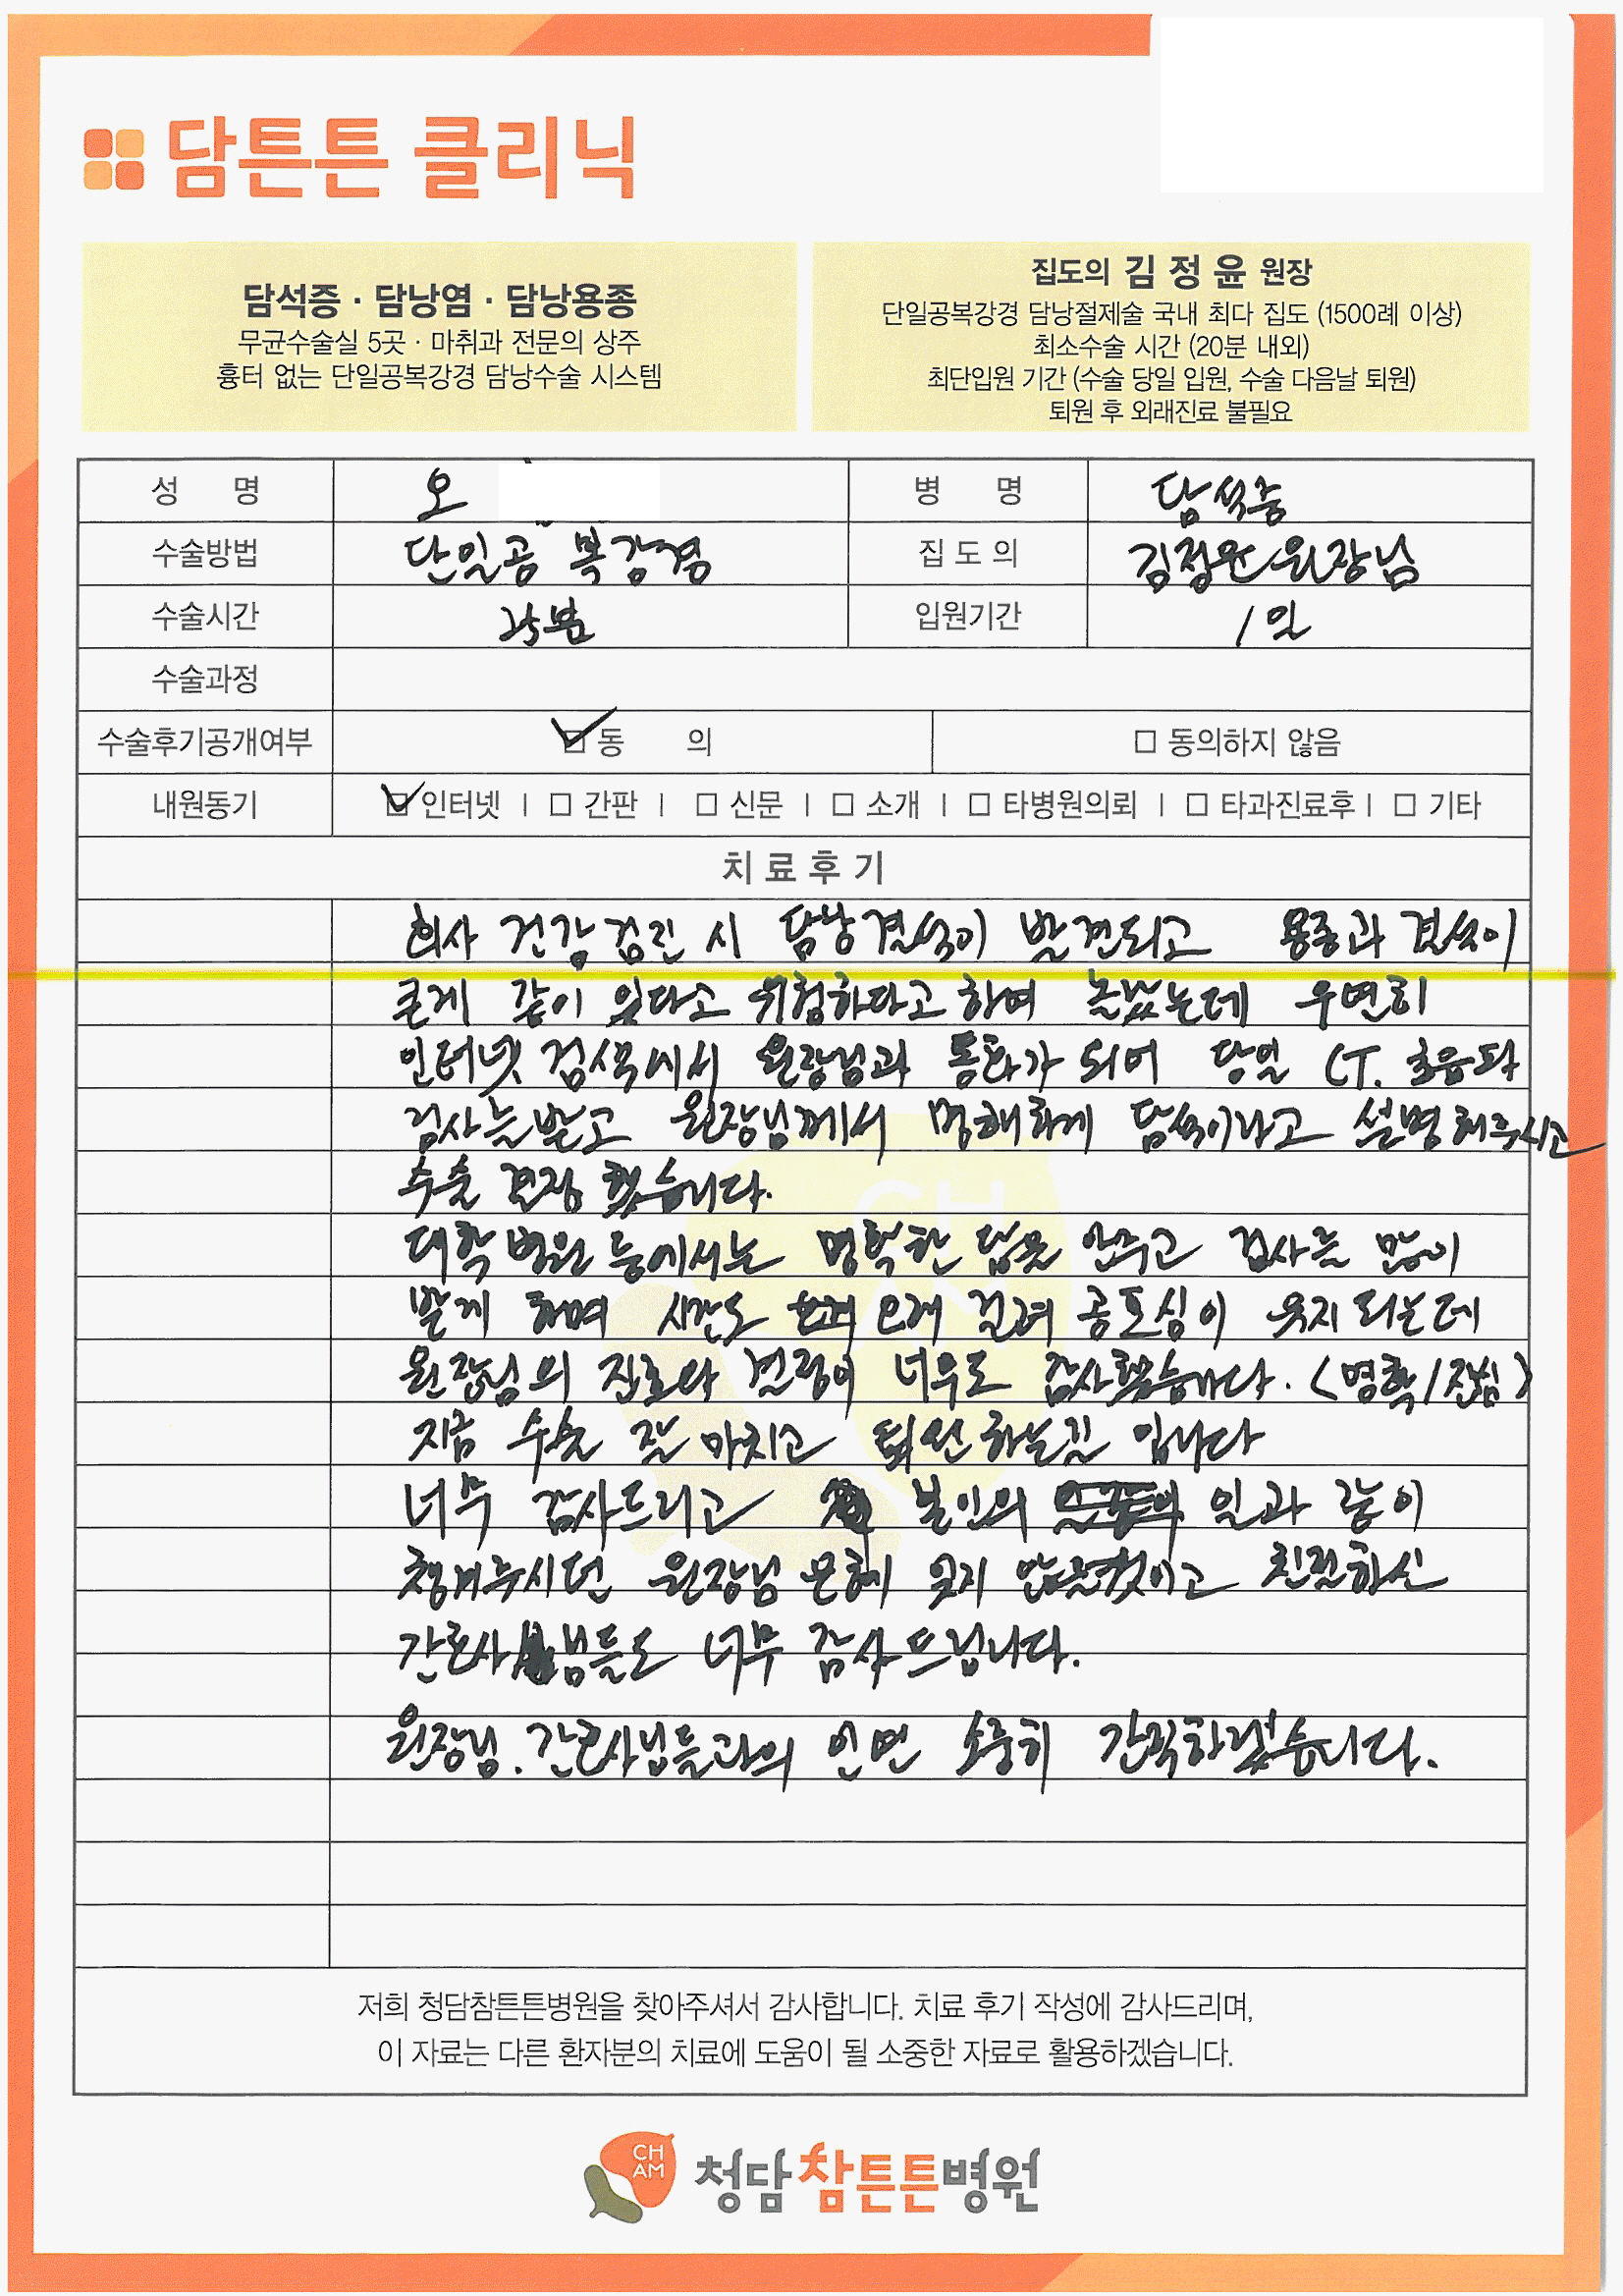 담튼튼 클리닉
담석증 · 담낭염 · 담낭용종
무균수술실 5곳 · 마취과 전문의 상주
흉터 없는 단일공복강경 담낭수술 시스템
집도의 김정윤 원장
단일공복강경 담낭절제술 국내 최다 집도 (1500례 이상)
최소수술 시간 (20분 내외)
최단입원 기간 (수술 당일 입원, 수술 다음날 퇴원)
퇴원 후 외래진료 불필요
성 명 오 병 명 담석증
수술방법 단일공 복강경 집도의 김정윤 원장님
수술시간 25분 입원기간 1일
수술과정
수술후기공개여부 ☑ 동 의 □ 동의하지 않음
내원동기 ☑ 인터넷 | □ 간판 | □ 신문 | □ 소개 | □ 타병원의뢰 | □ 타과진료후 | □ 기타
치료후기
회사 건강검진 시 담낭결석이 발견되고 용종과 결석이
큰게 같이 있다고 위험하다고 하여 놀랐는데 우연히
인터넷 검색에서 원장님과 통화가 되어 당일 CT. 초음파
검사를 받고 원장님께서 명쾌하게 담석이라고 설명해주시고
수술 결정 했습니다.
대학병원 등에서는 명확한 답을 안주고 검사를 많이
받게 하며 시간도 오래 걸려 공포심이 유지 되는데
원장님의 진료와 결정이 너무도 감사했습니다. (명확/진심)
지금 수술 잘 마치고 퇴원하는길 입니다
너무 감사드리고 본인의 일과 같이
챙겨주시던 원장님 은혜 잊지 않을것이고 친절하신
간호사님들도 너무 감사드립니다.
원장님. 간호사님들과의 인연 소중히 간직하겠습니다.
저희 청담참튼튼병원을 찾아주셔서 감사합니다. 치료 후기 작성에 감사드리며,
이 자료는 다른 환자분의 치료에 도움이 될 소중한 자료로 활용하겠습니다.
CH
AM
청담참튼튼병원